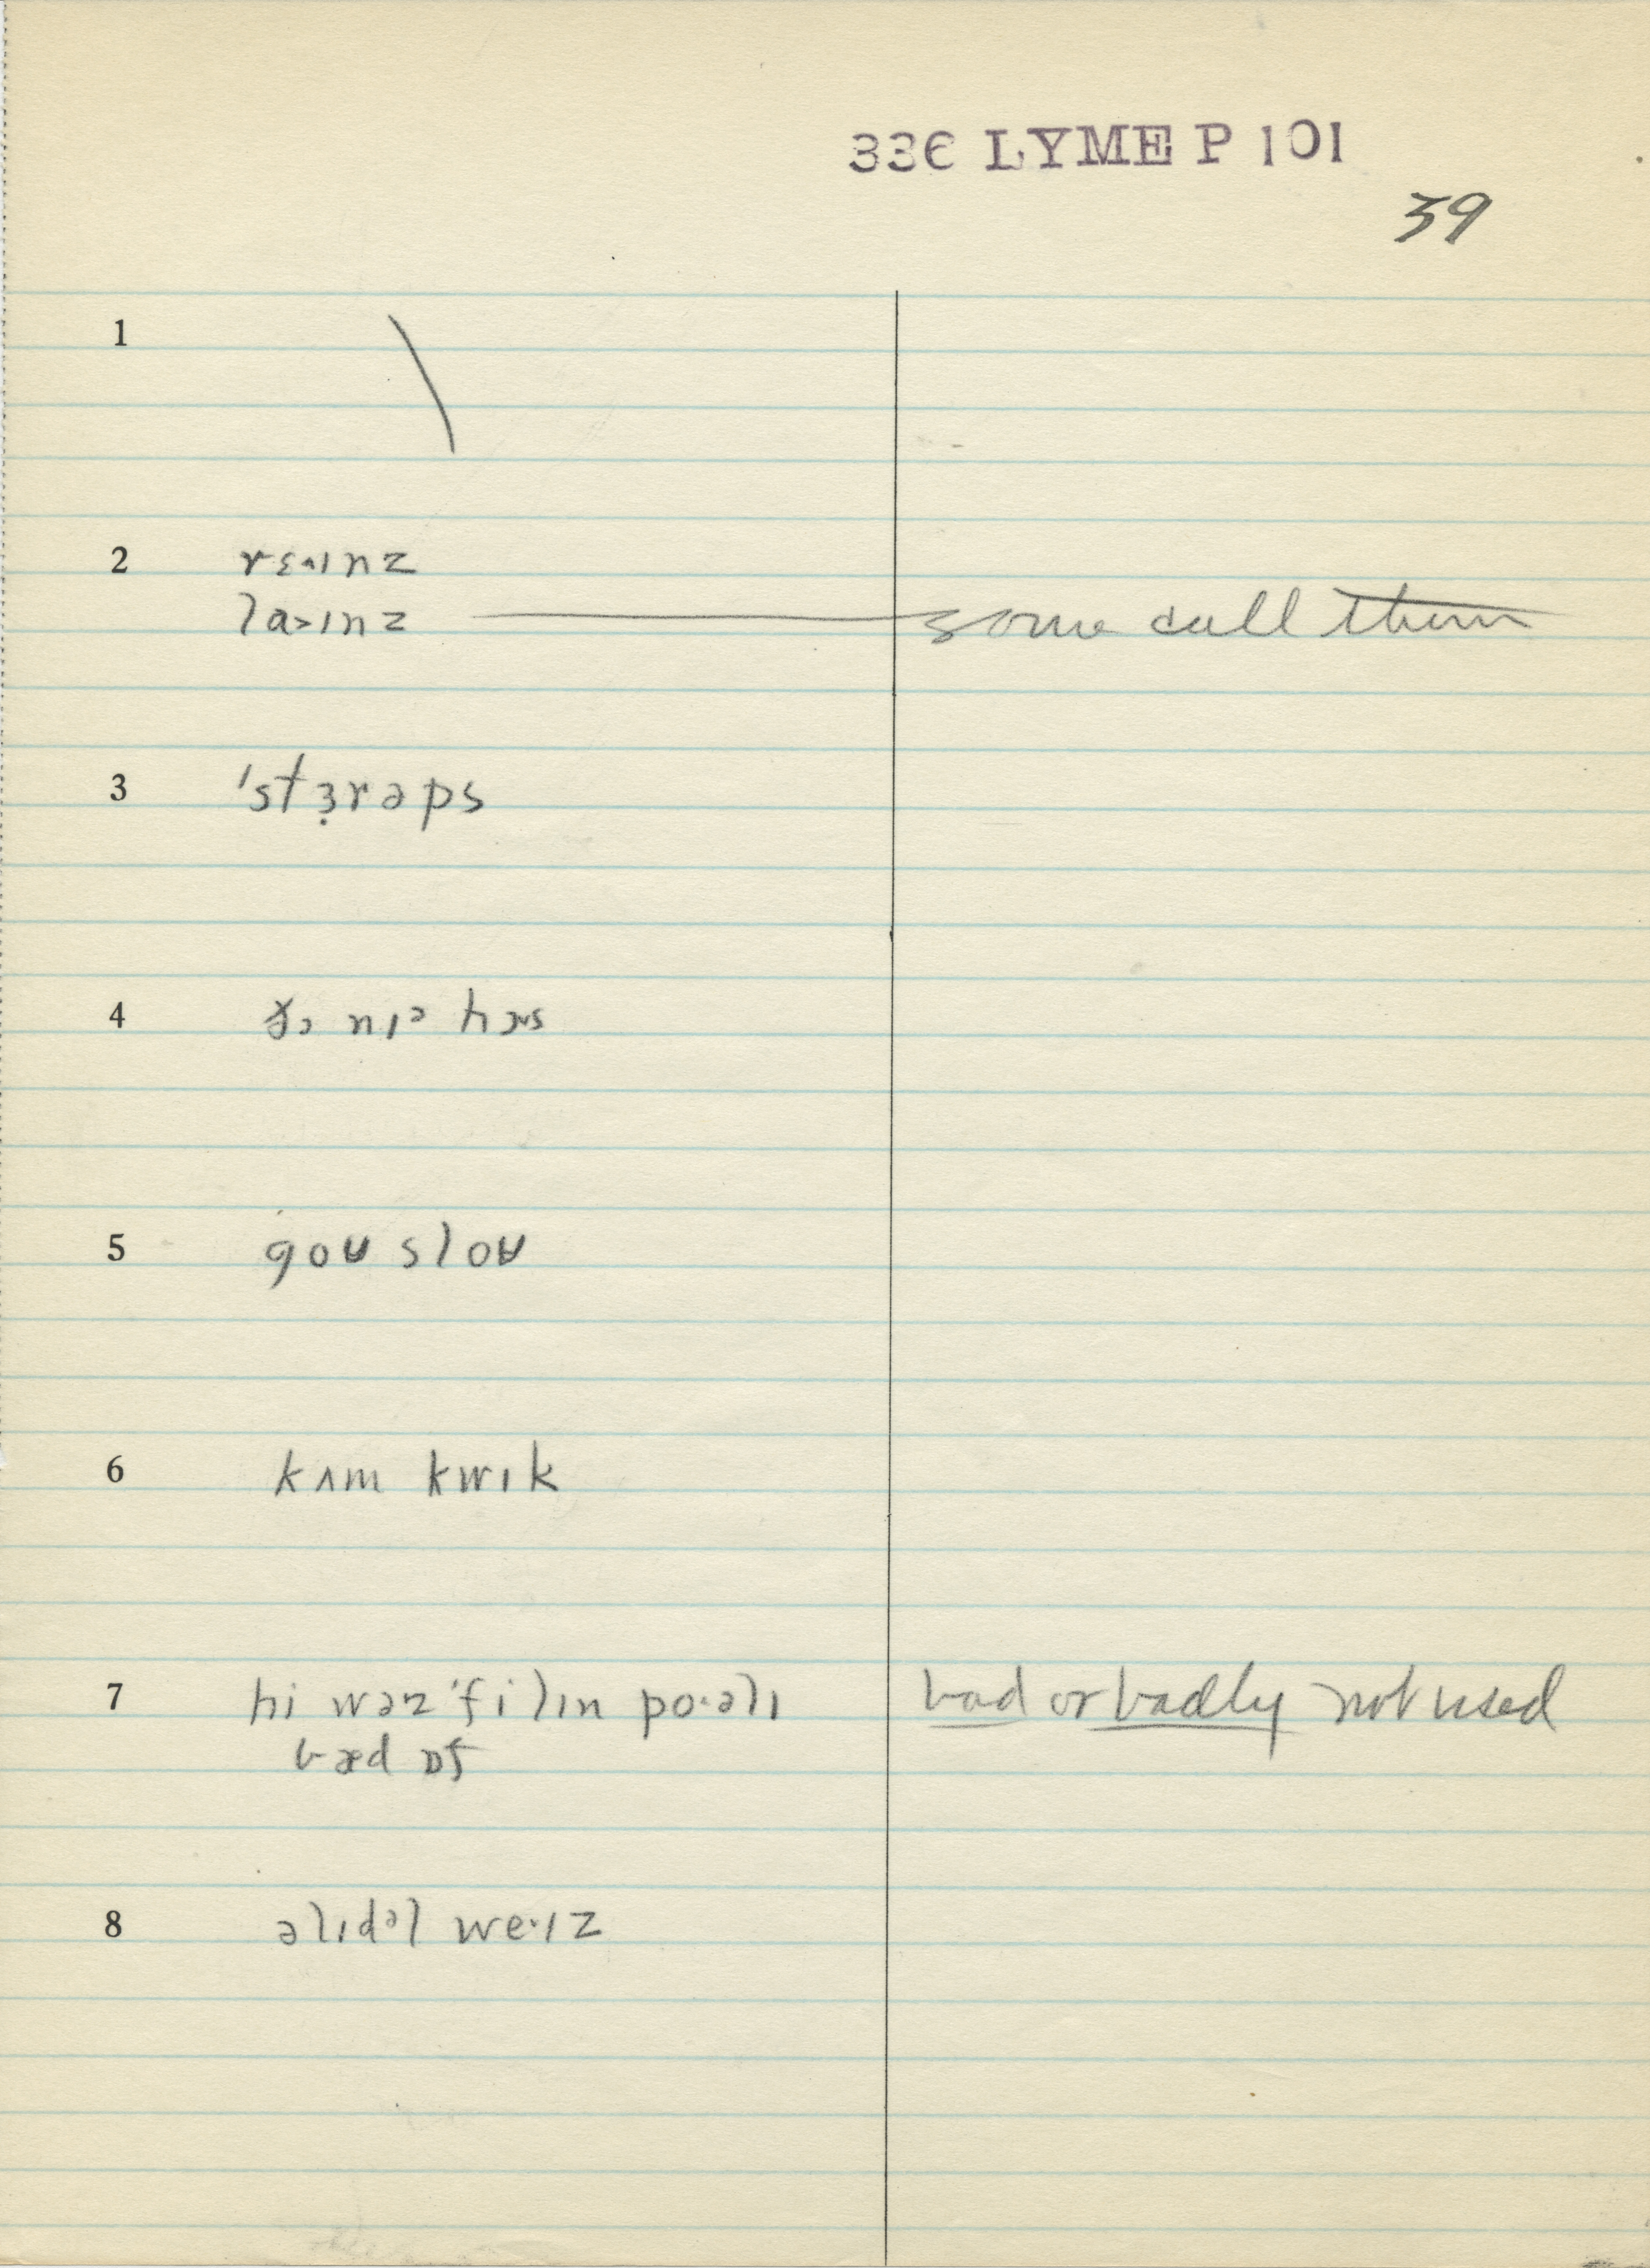 336 LYME P 101
39
1 \
2 rɛ˄ɪnz
la˃ɪnz — some call them
3 ˈstɜ̣rəps
4 nɪᵊ hɔs
5 goʊ sloʊ
6 kʌm kwɪk
7 hi wəz ˈfilɪn po·əlɪ bad or badly not used
bæd ɒf
8 əlɪdᵊl we·ɪz